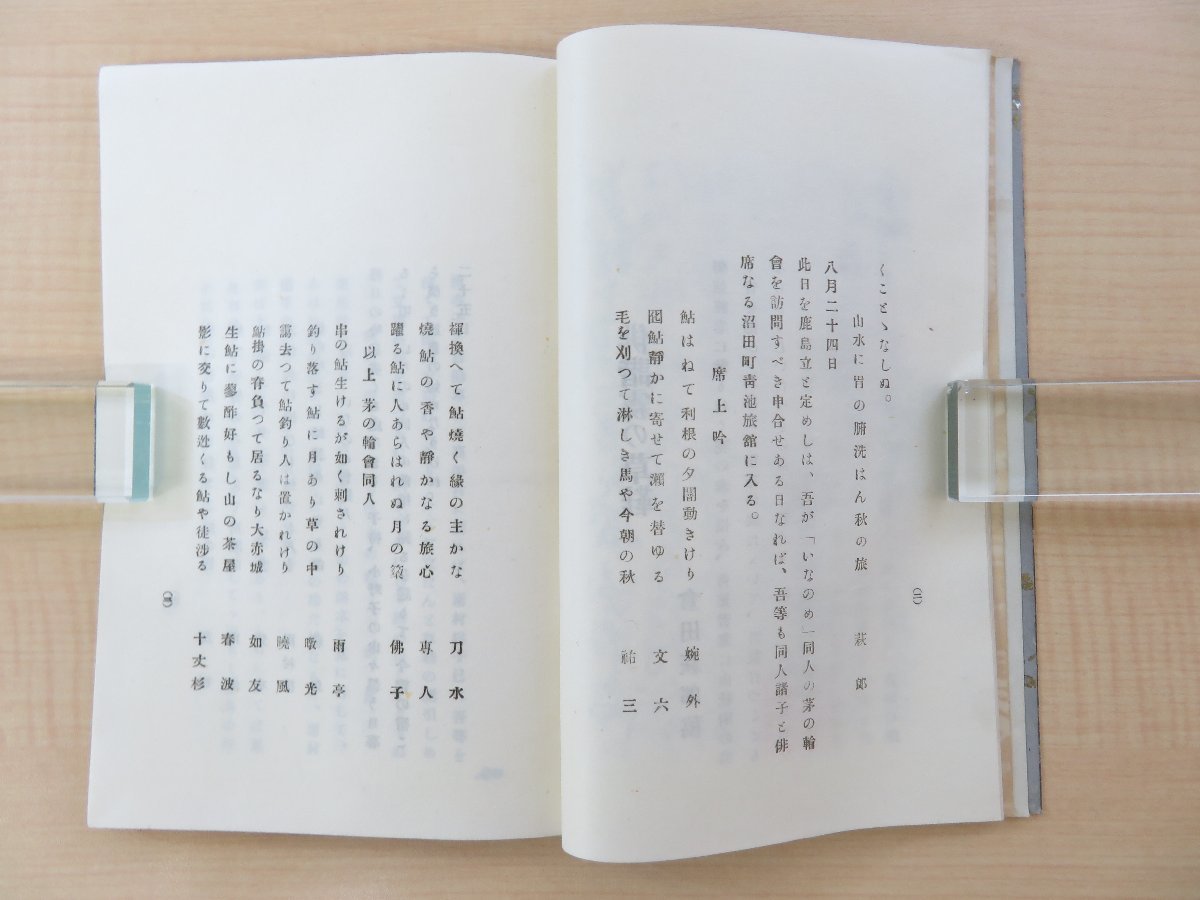 (二)
くことゝなしぬ。
山水に胃の腑洗はん秋の旅 萩郎
八月二十四日
此日を鹿島立と定めしは、吾が「いなのめ」同人の茅の輪
會を訪問すべき申合せある日なれば、吾等も同人諸子と俳
席なる沼田町靑池旅館に入る。
席上吟
鮎はねて利根の夕闇動きけり 婉外
囮鮎靜かに寄せて瀨を替ゆる 文六
毛を刈つて淋しき馬や今朝の秋 祐三
褌換へて鮎燒く緣の主かな 刀水
燒鮎の香や靜かなる旅心 専人
躍る鮎に人あらはれぬ月の簗 佛子
以上茅の輪會同人
串の鮎生けるが如く刺されけり 雨亭
釣り落す鮎に月あり草の中 暾光
靄去つて鮎釣り人は置かれけり 曉風
鮎掛の脊負つて居るなり大赤城 如友
生鮎に蓼酢好もし山の茶屋 春波
影に交りて數逃くる鮎や徒渉る 十丈杉
(三)